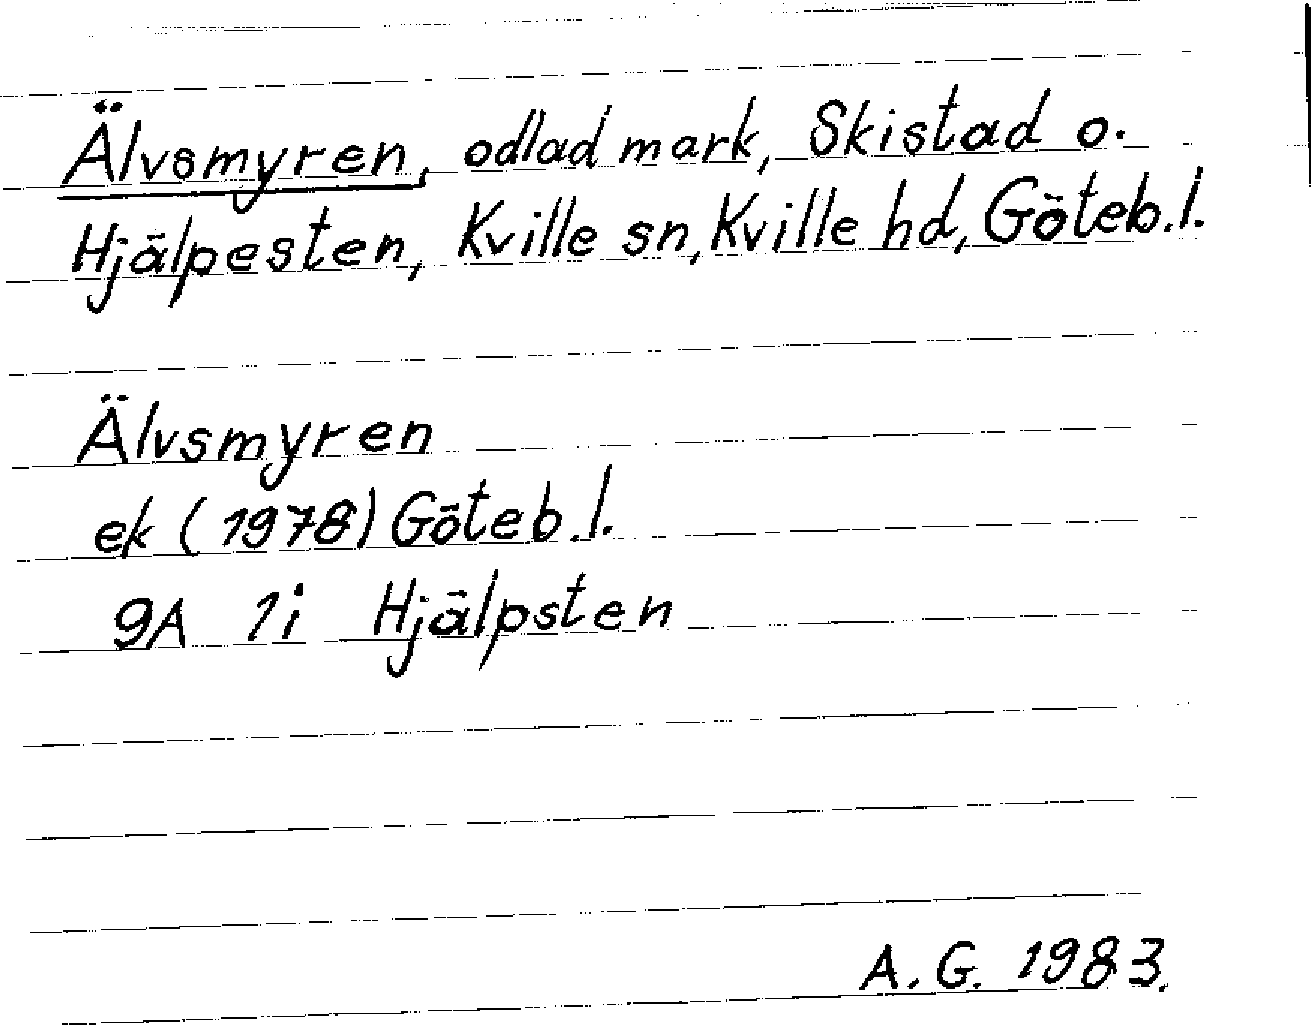 Älvsmyren, odlad mark, Skistad o.
Hjälpesten, Kville sn, Kville hd, Göteb.l.
Älvsmyren
ek (1978) Göteb.l.
9A 1i Hjälpsten
A.G. 1983.